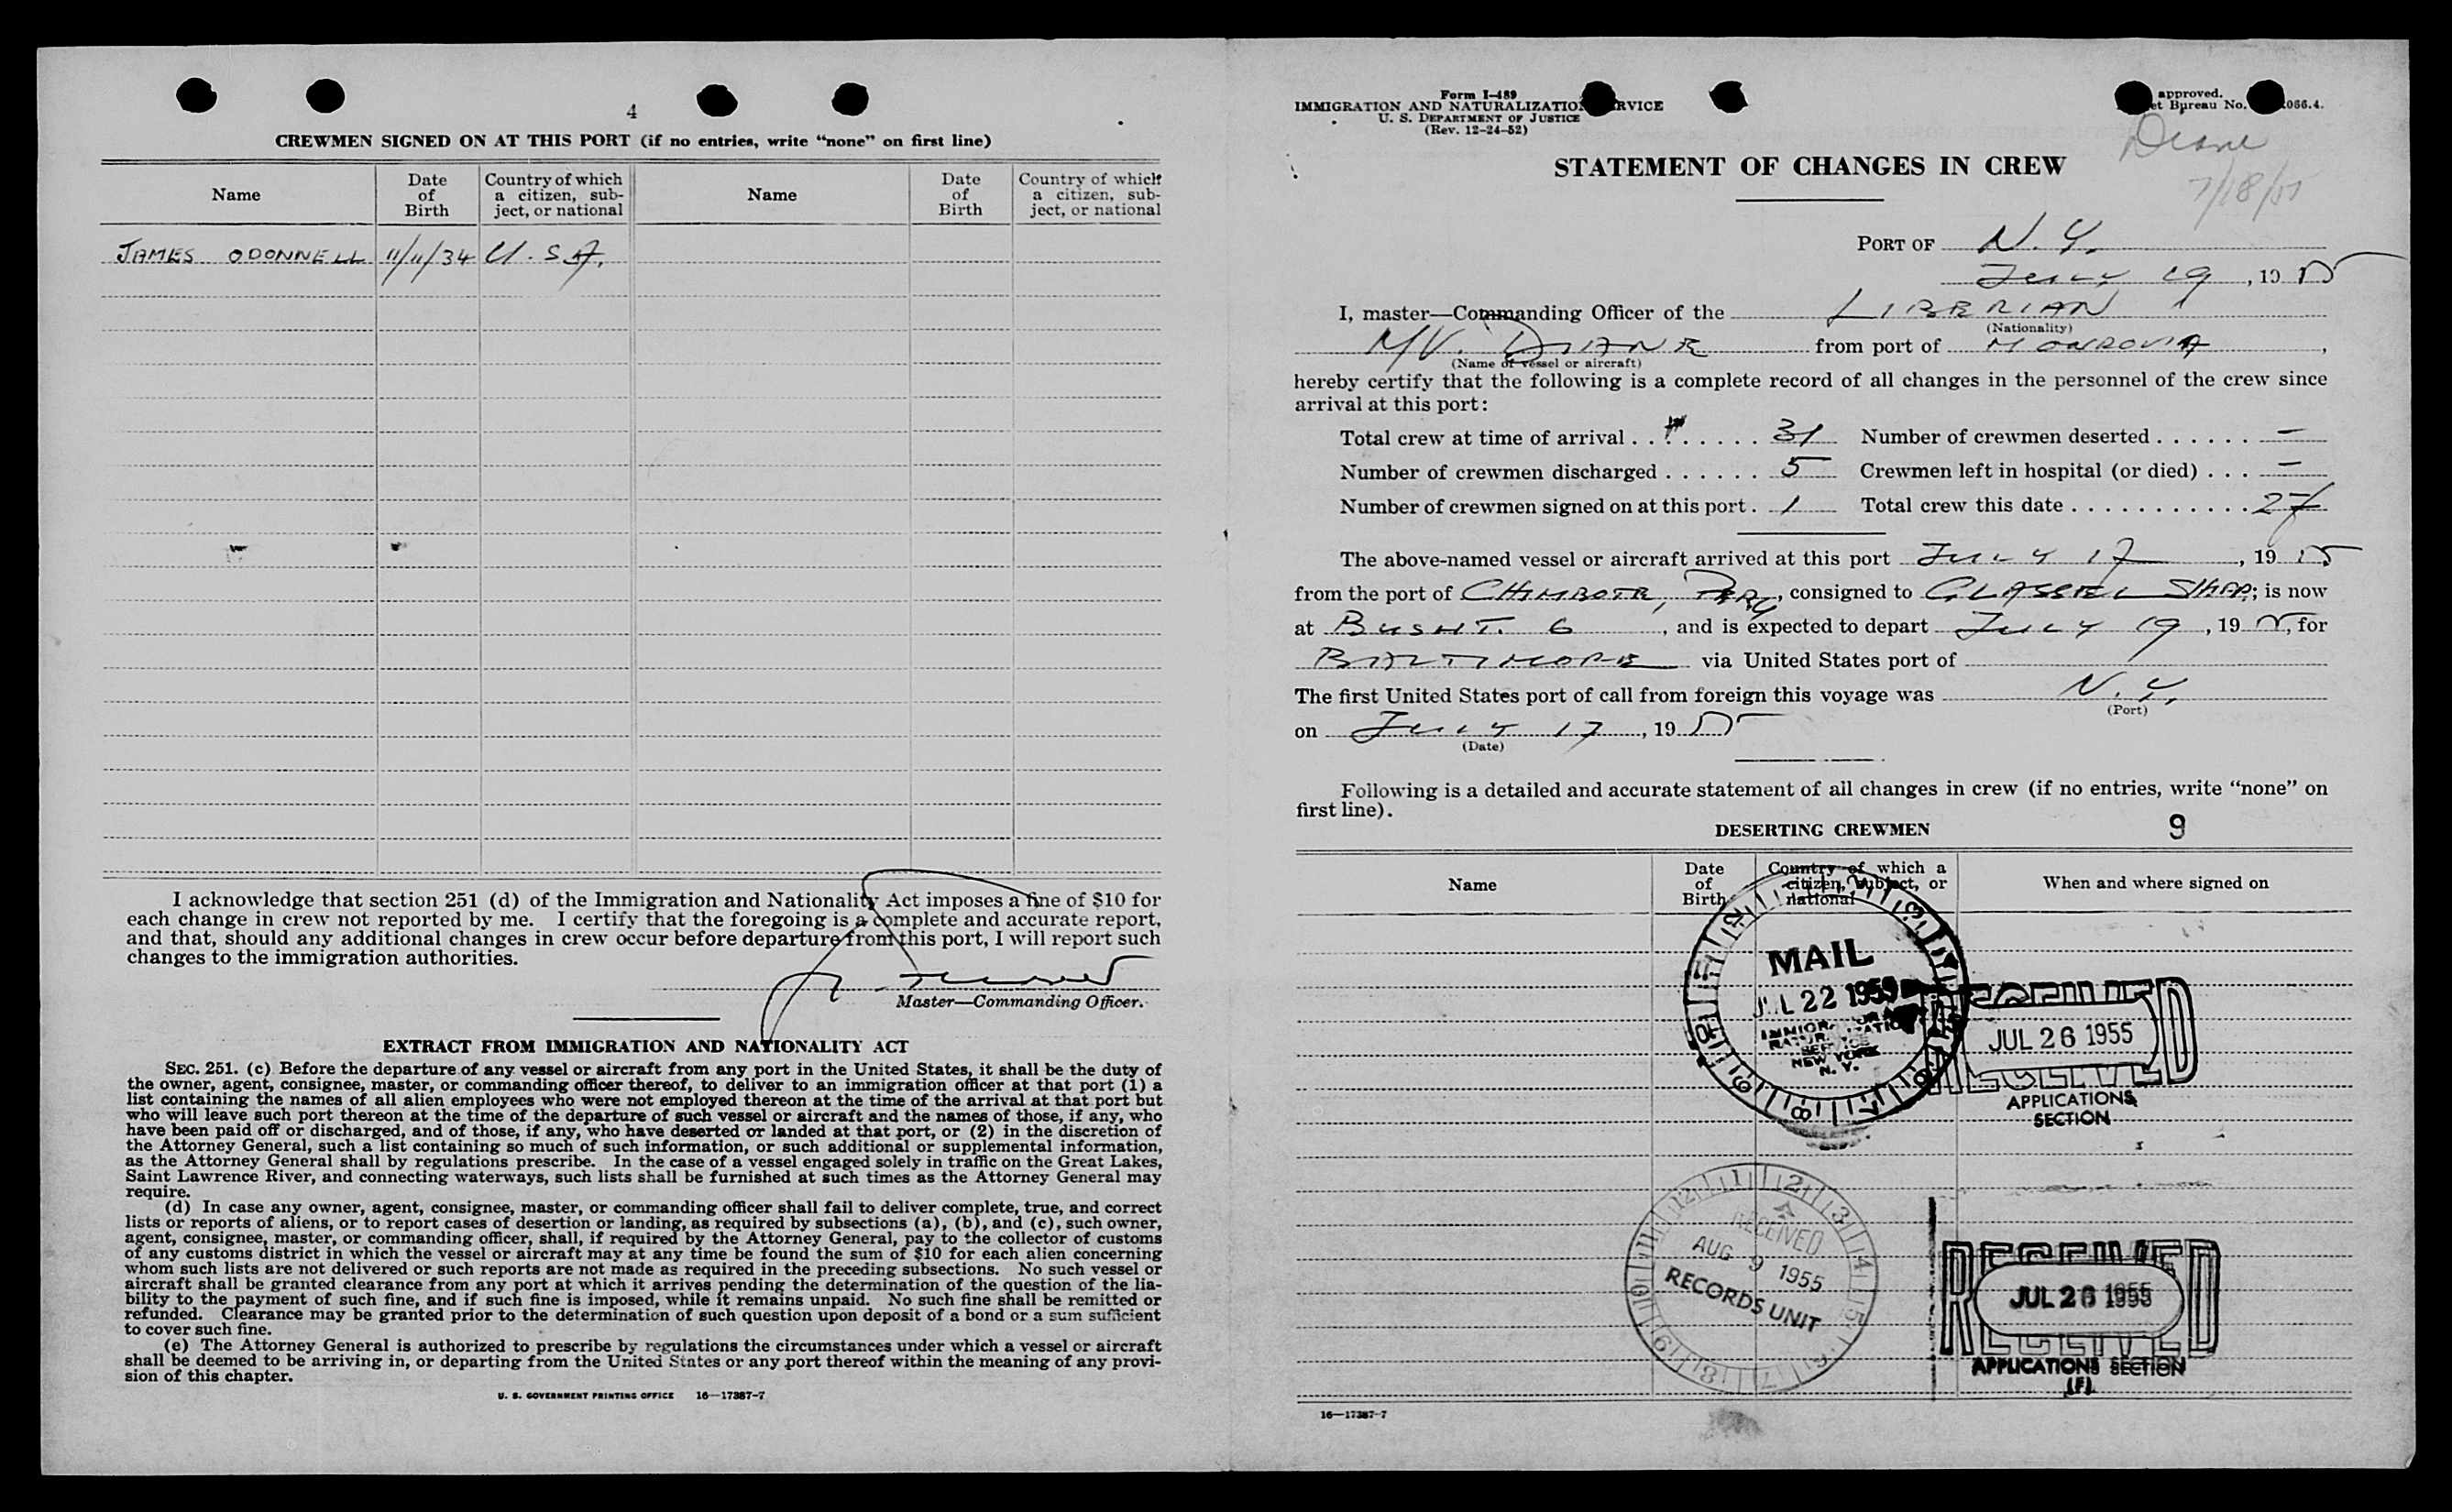 4
CREWMEN SIGNED ON AT THIS PORT (if no entries, write “none” on first line)
Name | Date of Birth | Country of which a citizen, sub-ject, or national | Name | Date of Birth | Country of which a citizen, sub-ject, or national
JAMES ODONNELL 11/11/34 U.S.A.
I acknowledge that section 251 (d) of the Immigration and Nationality Act imposes a fine of $10 for
each change in crew not reported by me. I certify that the foregoing is a complete and accurate report,
and that, should any additional changes in crew occur before departure from this port, I will report such
changes to the immigration authorities.
Master—Commanding Officer.
EXTRACT FROM IMMIGRATION AND NATIONALITY ACT
SEC. 251. (c) Before the departure of any vessel or aircraft from any port in the United States, it shall be the duty of
the owner, agent, consignee, master, or commanding officer thereof, to deliver to an immigration officer at that port (1) a
list containing the names of all alien employees who were not employed thereon at the time of the arrival at that port but
who will leave such port thereon at the time of the departure of such vessel or aircraft and the names of those, if any, who
have been paid off or discharged, and of those, if any, who have deserted or landed at that port, or (2) in the discretion of
the Attorney General, such a list containing so much of such information, or such additional or supplemental information,
as the Attorney General shall by regulations prescribe. In the case of a vessel engaged solely in traffic on the Great Lakes,
Saint Lawrence River, and connecting waterways, such lists shall be furnished at such times as the Attorney General may
require.
(d) In case any owner, agent, consignee, master, or commanding officer shall fail to deliver complete, true, and correct
lists or reports of aliens, or to report cases of desertion or landing, as required by subsections (a), (b), and (c), such owner,
agent, consignee, master, or commanding officer, shall, if required by the Attorney General, pay to the collector of customs
of any customs district in which the vessel or aircraft may at any time be found the sum of $10 for each alien concerning
whom such lists are not delivered or such reports are not made as required in the preceding subsections. No such vessel or
aircraft shall be granted clearance from any port at which it arrives pending the determination of the question of the lia-
bility to the payment of such fine, and if such fine is imposed, while it remains unpaid. No such fine shall be remitted or
refunded. Clearance may be granted prior to the determination of such question upon deposit of a bond or a sum sufficient
to cover such fine.
(e) The Attorney General is authorized to prescribe by regulations the circumstances under which a vessel or aircraft
shall be deemed to be arriving in, or departing from the United States or any port thereof within the meaning of any provi-
sion of this chapter.
U. S. GOVERNMENT PRINTING OFFICE 16—17387-7
Form I-489
IMMIGRATION AND NATURALIZATION SERVICE
U. S. DEPARTMENT OF JUSTICE
(Rev. 12-24-52)
approved.
Bureau No. 066.4.
Diane
7/18/55
STATEMENT OF CHANGES IN CREW
PORT OF N.Y.
July 19, 1955
I, master—Commanding Officer of the LIBERIAN
(Nationality)
M/V. DIANE from port of MONROVIA,
(Name of vessel or aircraft)
hereby certify that the following is a complete record of all changes in the personnel of the crew since
arrival at this port:
Total crew at time of arrival . . . . . . . 31 Number of crewmen deserted . . . . . . —
Number of crewmen discharged . . . . . . 5 Crewmen left in hospital (or died) . . . —
Number of crewmen signed on at this port . 1 Total crew this date . . . . . . . . . . . 27
The above-named vessel or aircraft arrived at this port JULY 17, 1955
from the port of CHIMBOTE, PERU, consigned to GLASSEL SHAP; is now
at BUSH T. 6, and is expected to depart JULY 19, 1955, for
BALTIMORE via United States port of
The first United States port of call from foreign this voyage was N.Y.
(Port)
on JULY 17, 1955
(Date)
Following is a detailed and accurate statement of all changes in crew (if no entries, write “none” on
first line).
DESERTING CREWMEN 9
Name | Date of Birth | Country of which a citizen, subject, or national | When and where signed on
MAIL
JUL 22 1955
IMMIGRATION &
NATURALIZATION
SERVICE
NEW YORK
N. Y.
RECEIVED
JUL 26 1955
RECEIVED
APPLICATIONS
SECTION
RECEIVED
AUG 9 1955
RECORDS UNIT
RECEIVED
JUL 26 1955
RECEIVED
APPLICATIONS SECTION
(F)
16—17387-7